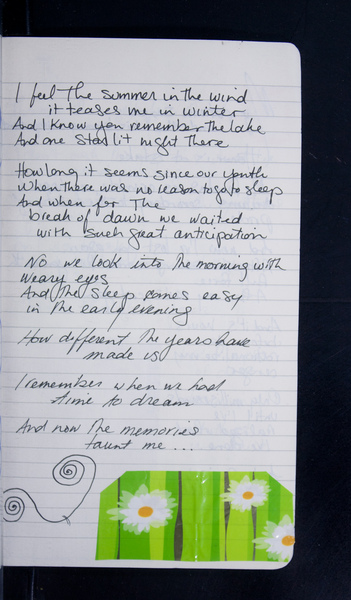 I feel The summer in the wind
it teases me in winter
And I know you remember the lake
And one Star lit night There
How long it seems since our youth
When there was no reason to go to sleep
And when for The
break of dawn we waited
with such great anticipation
No we look into The morning with
weary eyes
And The sleep comes easy
in The early evening
How different The years have
made us
I remember when we had
time to dream
And now The memories
taunt me ...